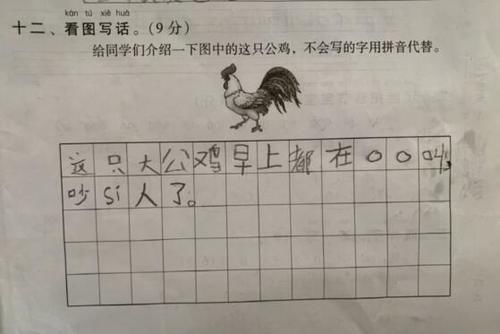 kàn tú xiě huà
十二、看图写话。(9分)
给同学们介绍一下图中的这只公鸡,不会写的字用拼音代替。
这只大公鸡早上都在OOO叫,
吵si人了。